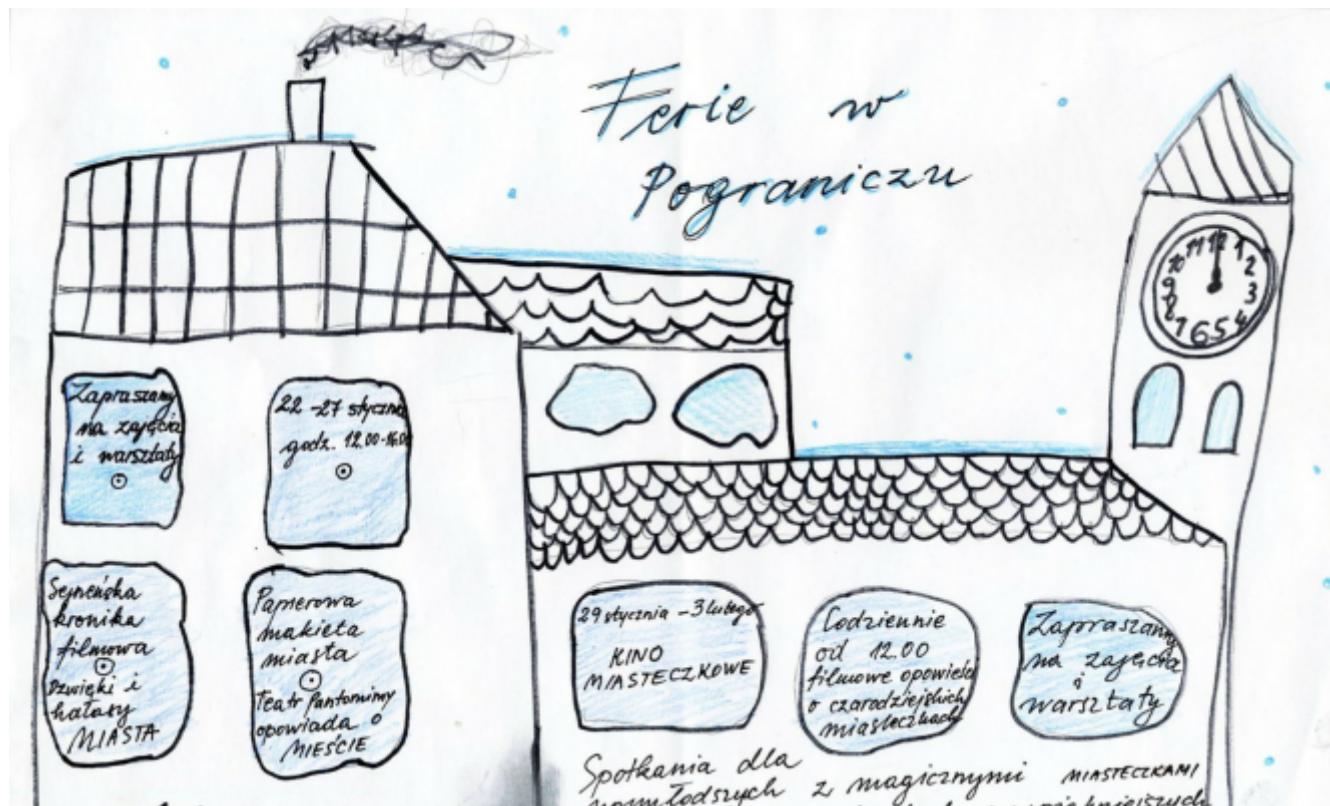 Ferie w
Pograniczu
11 12 1
10 2
9 3
8 4
7 6 5
Zapraszamy
na zajęcia
i warsztaty
22-27 stycznia
godz. 12.00-16.00
Sejneńska
kronika
filmowa
Dzwięki i
hałasy
MIASTA
Papierowa
makieta
miasta
Teatr Pantomimy
opowiada o
MIEŚCIE
29 stycznia - 3 lutego
KINO
MIASTECZKOWE
Codziennie
od 12.00
filmowe opowieści
o czarodziejskich
miasteczkach
Zapraszamy
na zajęcia
i
warsztaty
Spotkania dla
z magicznymi MIASTECZKAMI